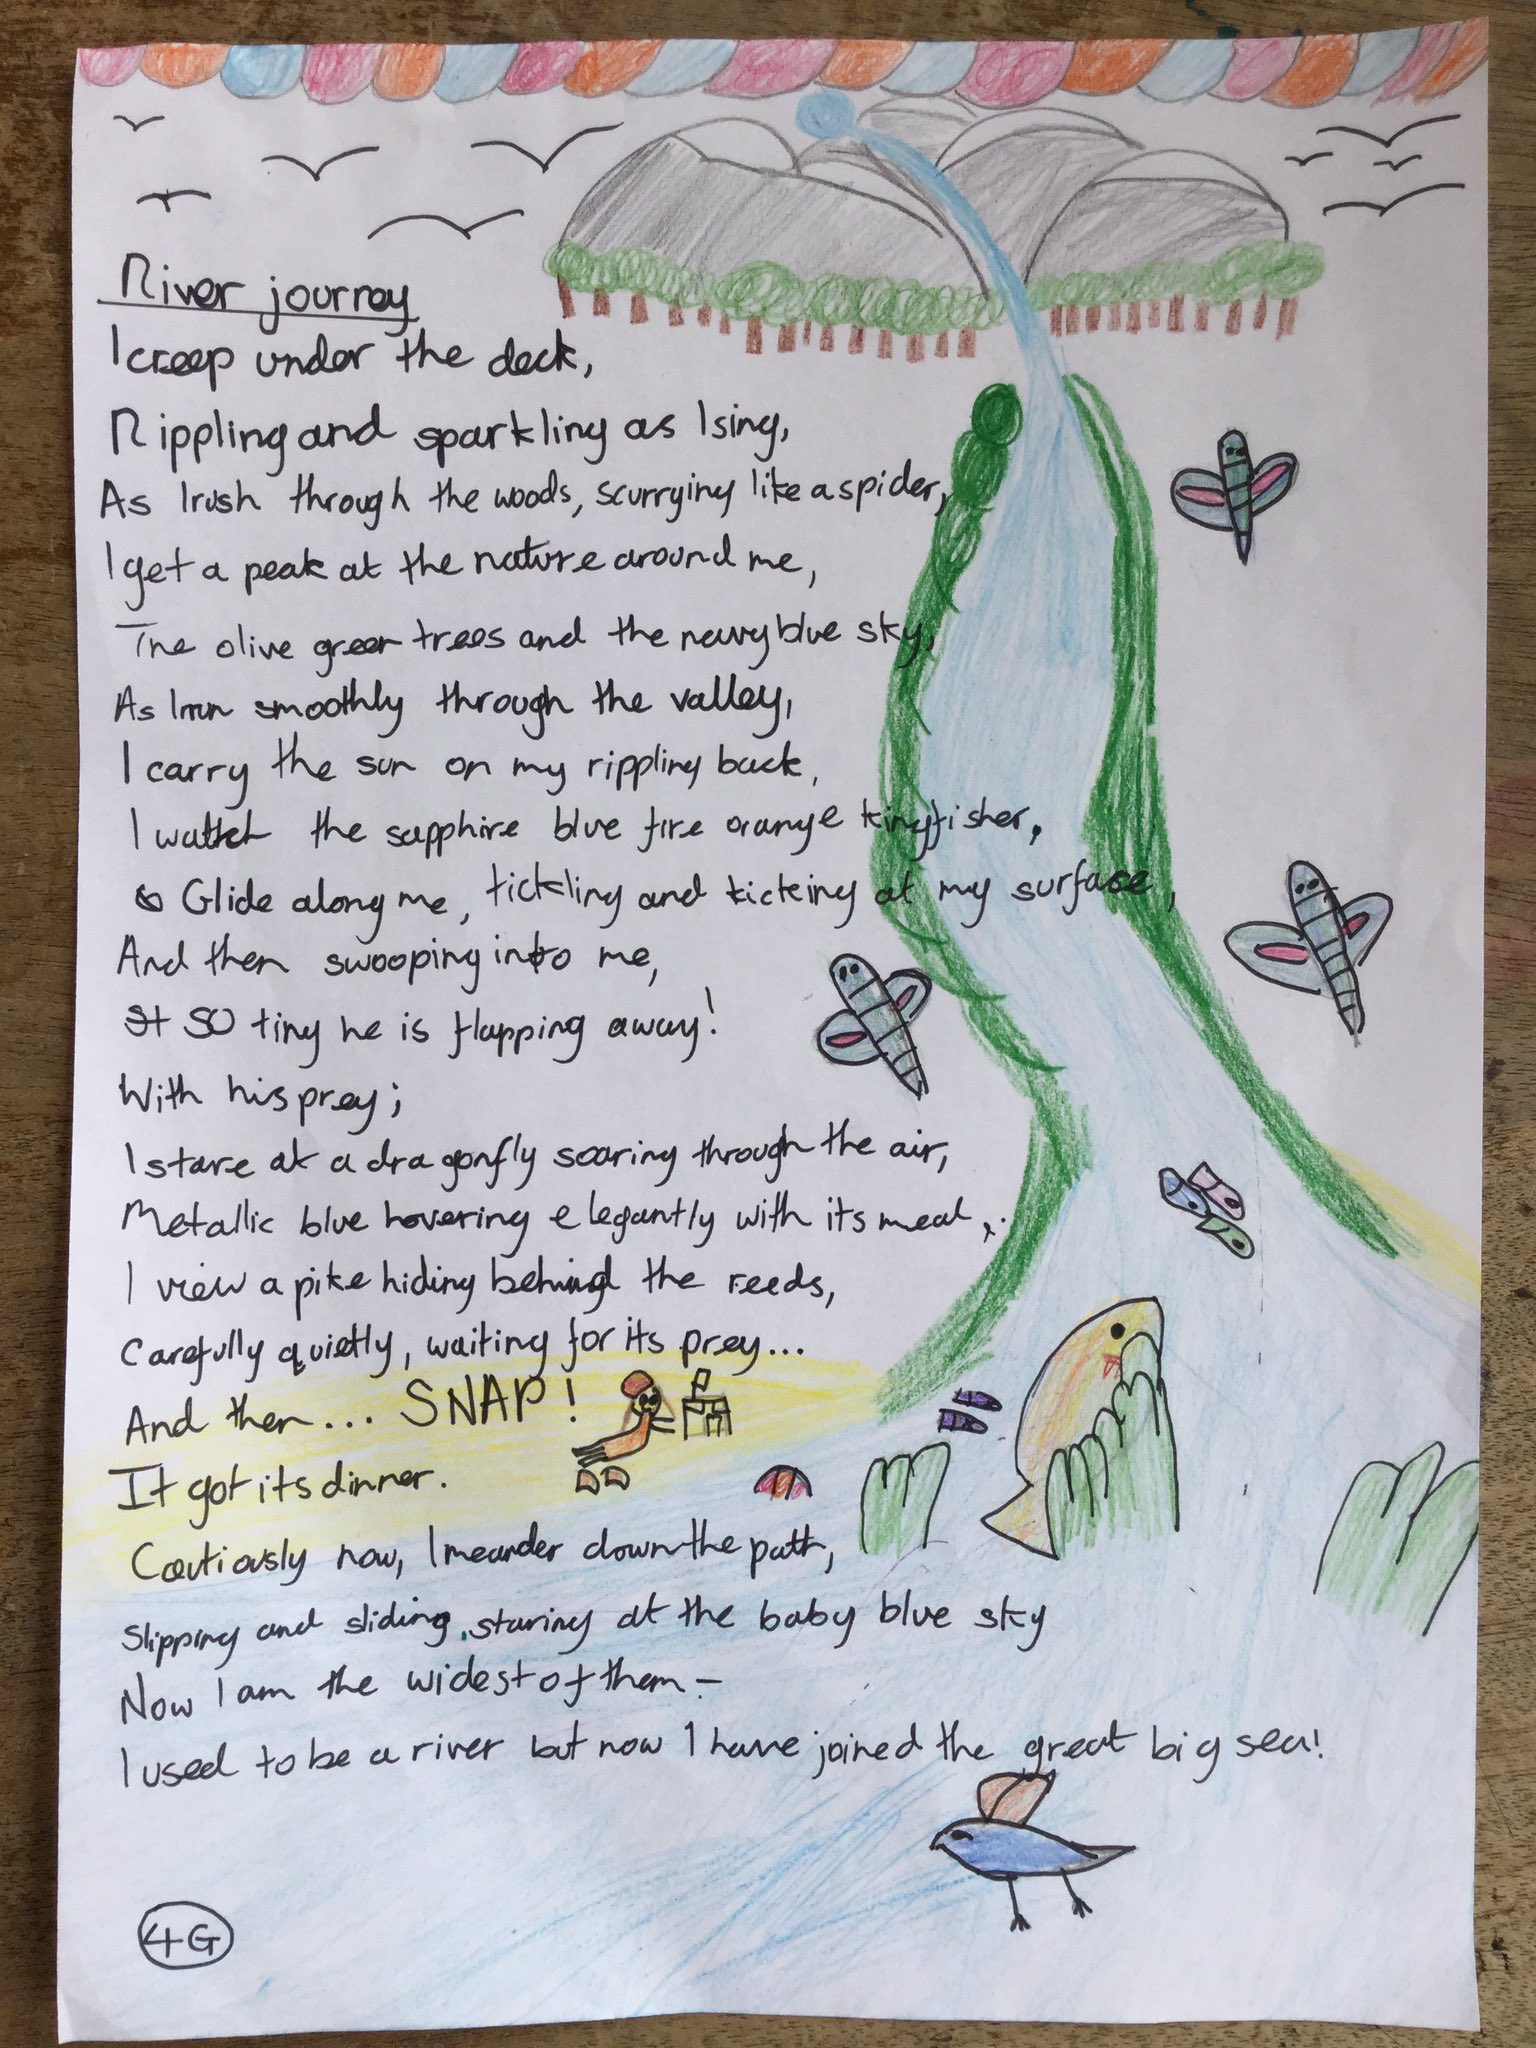 River journey
I creep under the deck,
Rippling and sparkling as I sing,
As I rush through the woods, scurrying like a spider,
I get a peak at the nature around me,
The olive green trees and the navy blue sky,
As I run smoothly through the valley,
I carry the sun on my rippling back,
I watch the sapphire blue fire orange kingfisher,
Glide along me, tickling and kicking at my surface,
And then swooping into me,
SO tiny he is flapping away!
With his prey;
I stare at a dragonfly soaring through the air,
Metallic blue hovering elegantly with its meal,
I view a pike hiding behind the reeds,
Carefully quietly, waiting for its prey...
And then... SNAP!
It got its dinner.
Cautiously now, I meander down the path,
Slipping and sliding, staring at the baby blue sky
Now I am the widest of them -
I used to be a river but now I have joined the great big sea!
4G